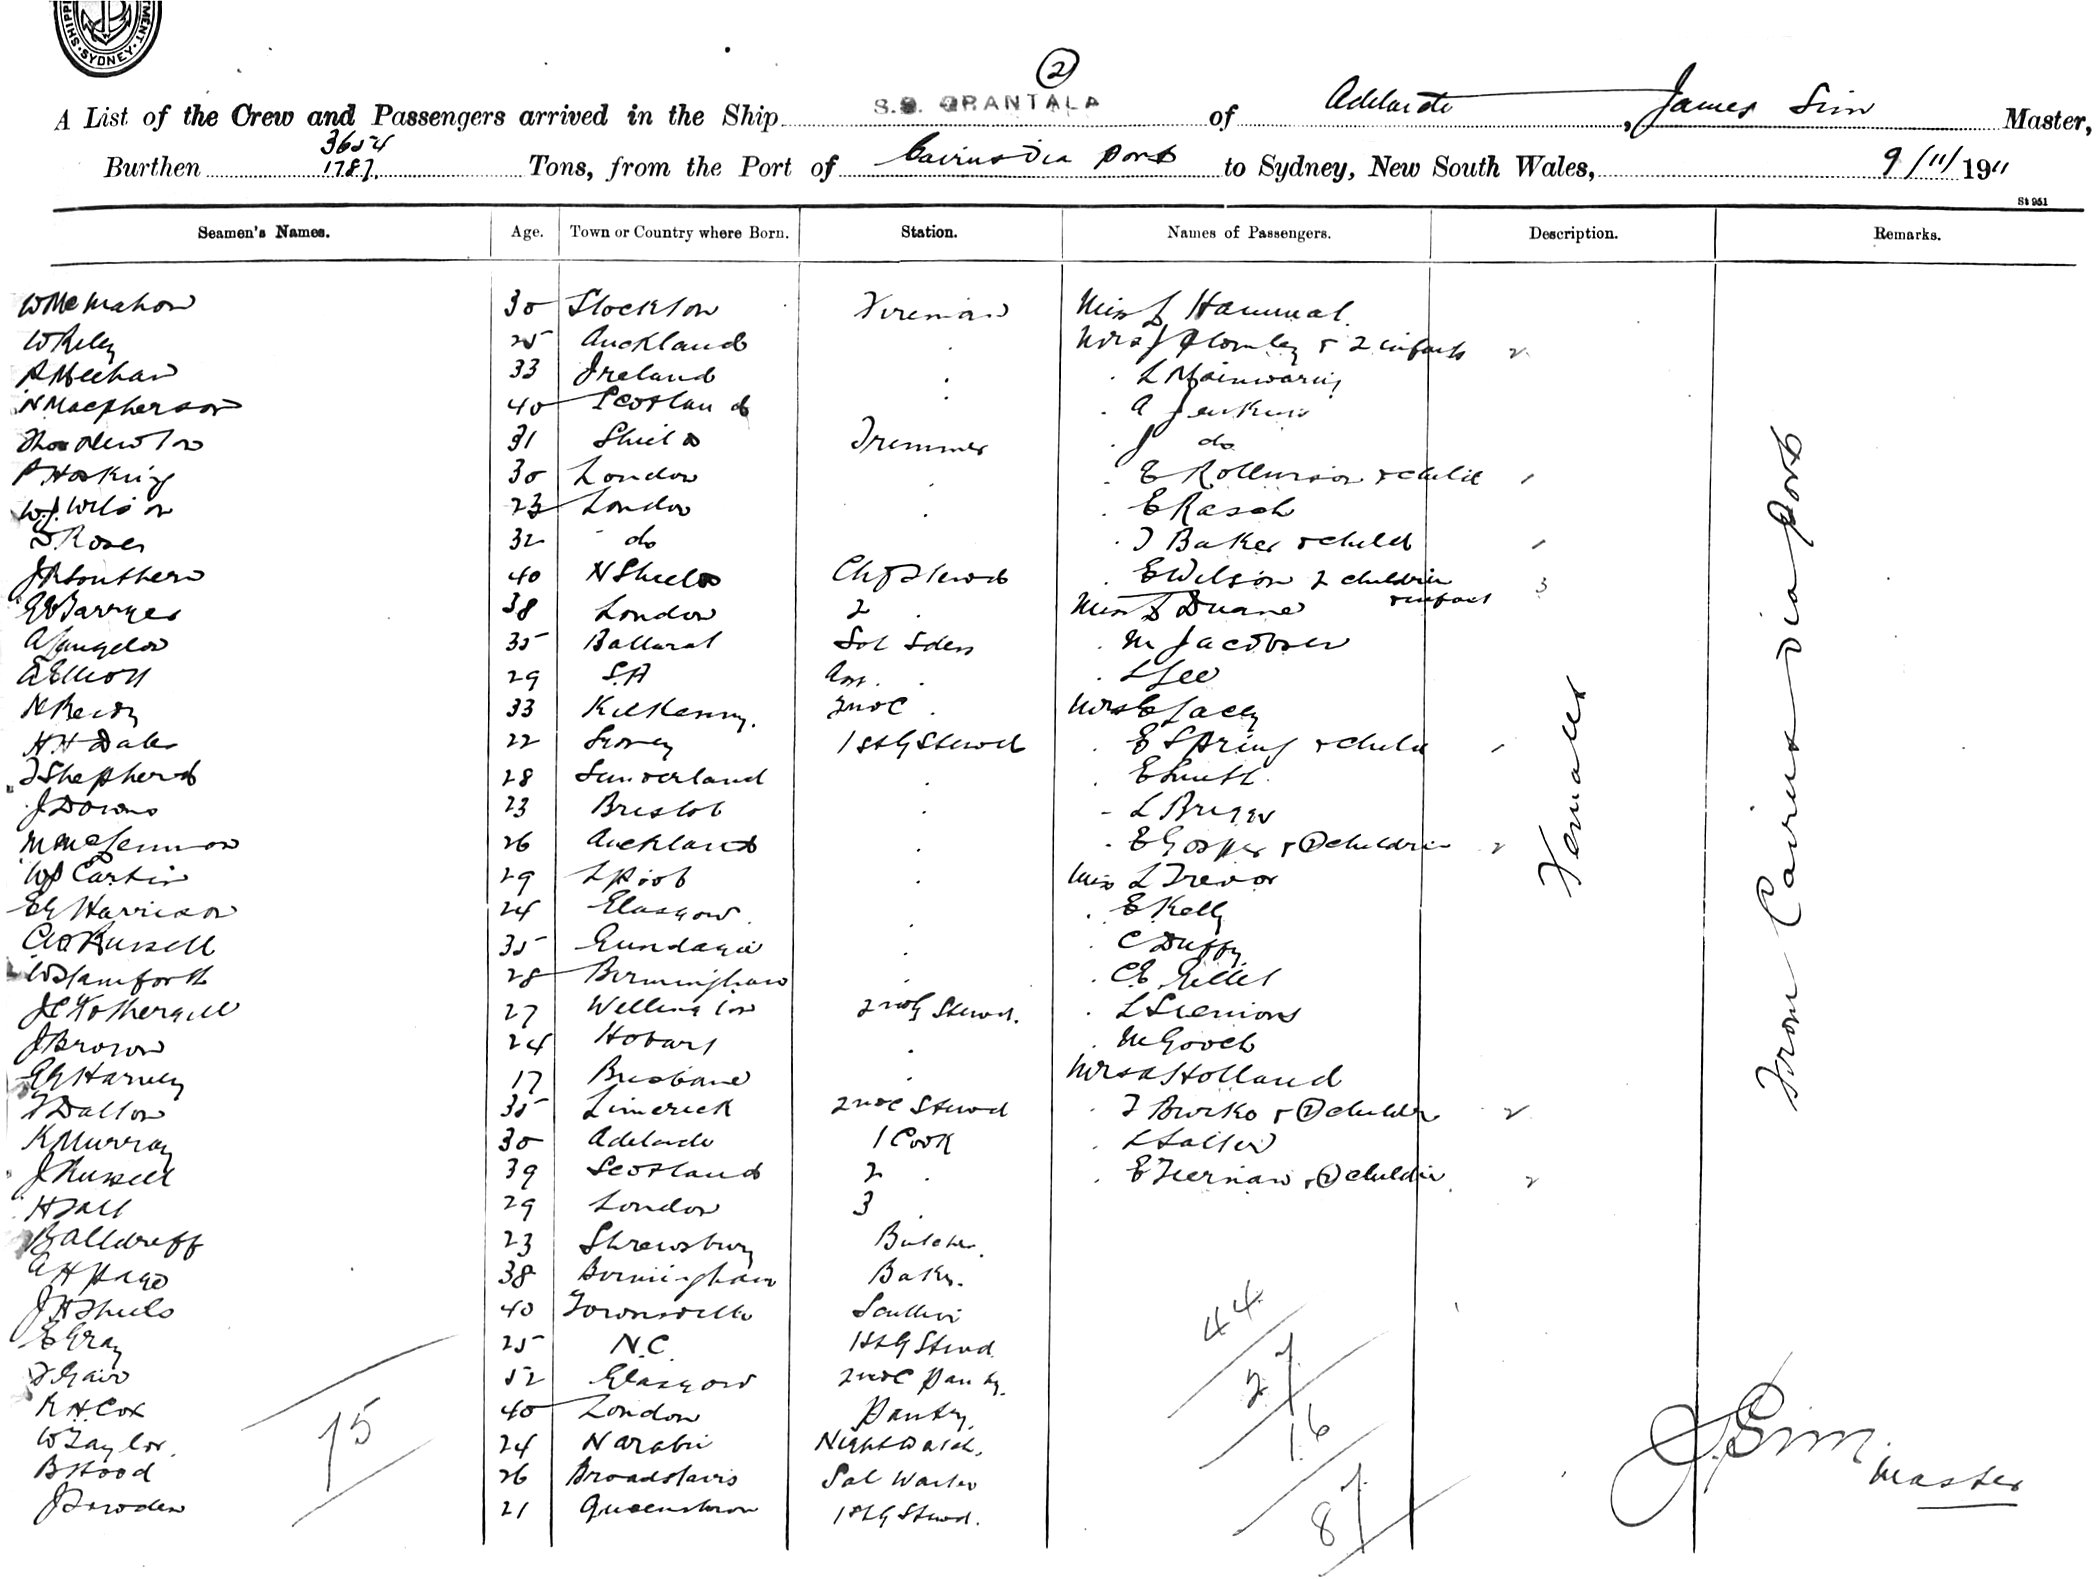 SYDNEY
2
A List of the Crew and Passengers arrived in the Ship S.S. GRANTALA of Adelaide, James Sim Master,
3654
Burthen 1787. Tons, from the Port of Cairns via Ports to Sydney, New South Wales, 9/11/1911
St 951
Seamen's Names. Age. Town or Country where Born. Station. Names of Passengers. Description. Remarks.
W McMahon 30 Stockton Fireman Miss Hammal
W Riley 25 Auckland Mrs J Plomley & 2 infants 2
Meehan 33 Ireland L Mainwaring
N Macpherson 40 Scotland A Jenkins
Thos Newton 31 Shields Trimmer J do
P Hosking 30 London E Rollinson & child 1
W.J. Wilson 23 London E Rasch
Roser 32 do T Baker & child 1
J R Southern 40 N Shields Chf Stewd E Wilson 2 children 3
& infant
38 London 2 Miss Duane
A Langelow 35 Ballarat M Jacobsen
A Elliott 29 S.A Ass. L Lee
33 Kilkenny. 2nd C Mrs E Lacey
H H Dale 22 Sydney 1st G Stewd E Spring & child 1
T Shepherd 28 Sunderland E Smith
J Downs 23 Bristol L Briggs
M McLennon 26 Auckland E Gosper & 2 children 2
W Partin 29 L Pool Miss L Trevor
E G Harrison 24 Glasgow E Kelly
Russell 35 Gundagai C Duffy
W Stamforth 28 Birmingham C E Gillet
J C Fothergill 27 Wellington 2nd G Stewd. L Siemons
J Brown 24 Hobart M Gooch
E G Harvey 17 Brisbane Mrs A Holland
T Dalton 35 Limerick 2nd C Stewd T Burke & 2 childn 2
K Murray 30 Adelaide 1 Cook L Salter
J Russell 39 Scotland 2 E Tiernan & 2 children 2
H Hall 29 London 3
B Alldreff 23 Shrewsbury Butcher
A H Page 38 Birmingham Baker.
J H Shiels 40 Townsville Scullion
E Gray 25 N.C. 1st G Stewd.
T Gair 52 Glasgow 2nd C Pantry.
R H Cox 40 London Pantry.
W Taylor. 24 Narabri Nightwatch.
B Hood 26 Broadstairs Sal Waiter
J Bowden 21 Queenstown 1st G Stewd.
Females
From Cairns via Ports
75
44
27
16
87
J Sim
Master